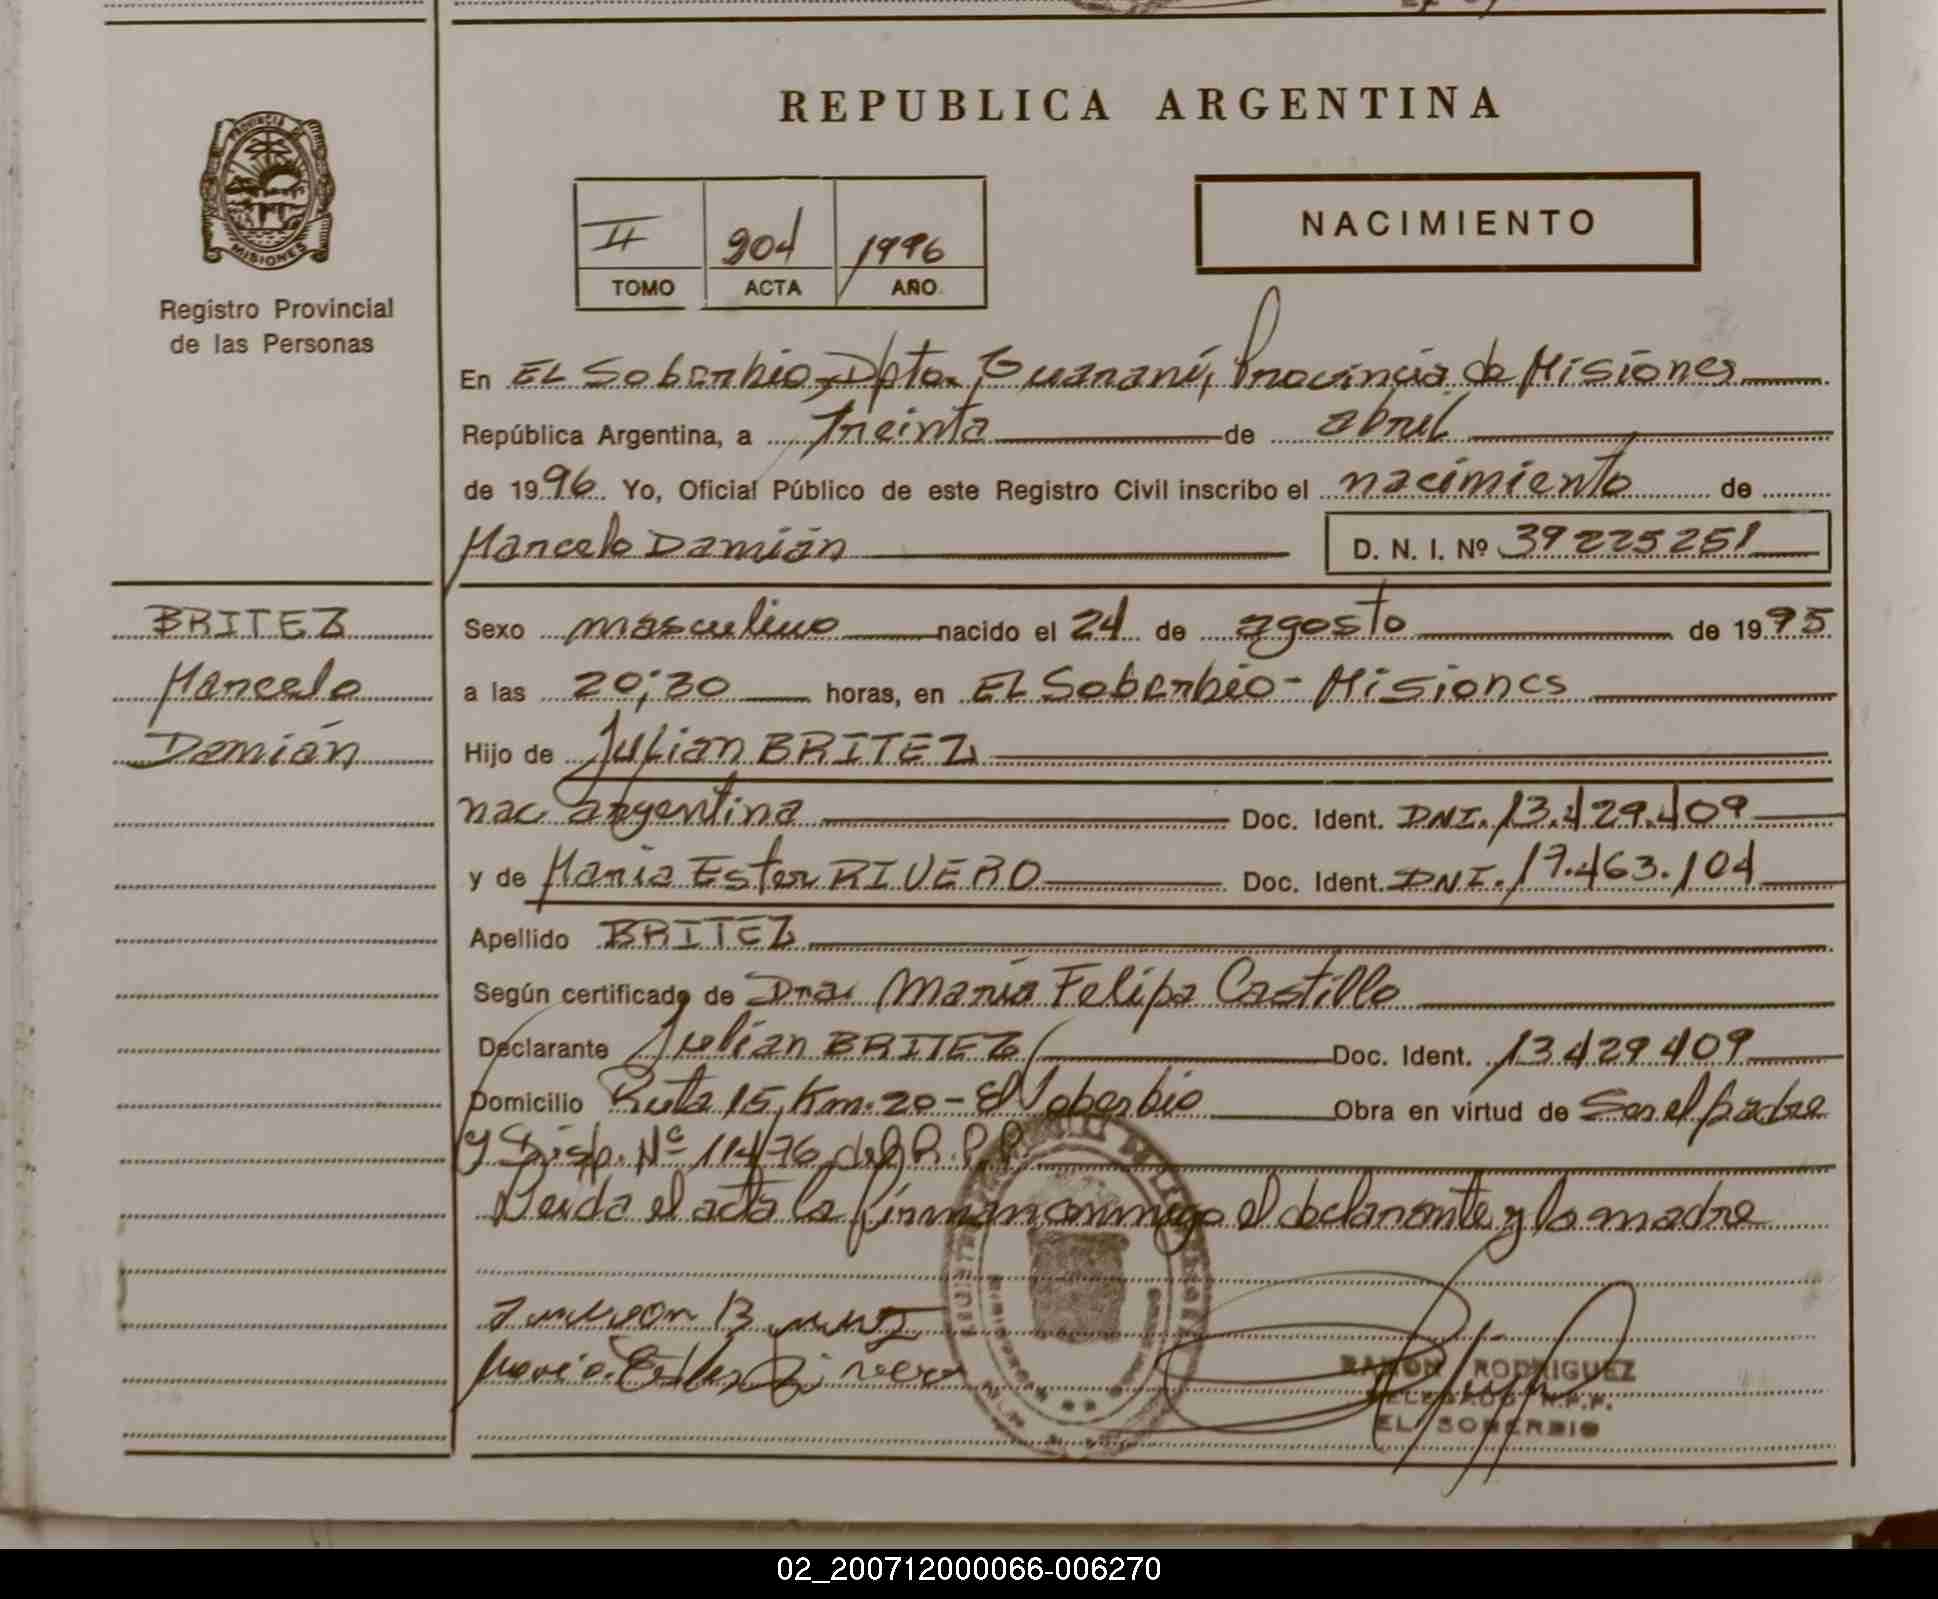 REPUBLICA ARGENTINA
PROVINCIA DE
MISIONES
Registro Provincial
de las Personas
NACIMIENTO
II 904 1996
TOMO ACTA AÑO
En EL Soberbio, Dpto. Guaraní, Provincia de Misiones
República Argentina, a treinta de abril
de 1996 Yo, Oficial Público de este Registro Civil inscribo el nacimiento de
Marcelo Damián D. N. I. Nº 39225251
BRITEZ
Marcelo
Damián
Sexo masculino nacido el 24 de agosto de 1995
a las 20;30 horas, en EL Soberbio - Misiones
Hijo de Julian BRITEZ
nac argentina Doc. Ident. DNI. 13.429.409
y de Maria Ester RIVERO Doc. Ident. DNI. 17.463.104
Apellido BRITEZ
Según certificado de Dra. María Felipa Castillo
Declarante Julian BRITEZ Doc. Ident. 13429409
Domicilio Ruta 15 Km. 20 - El Soberbio Obra en virtud de Ser el padre
y Disp. Nº 114/76 del R.P.P.
Leida el acta la firman conmigo el declarante y la madre
Maria Ester Rivero
RAMON RODRIGUEZ
DELEGADO R.P.P.
EL SOBERBIO
02_200712000066-006270